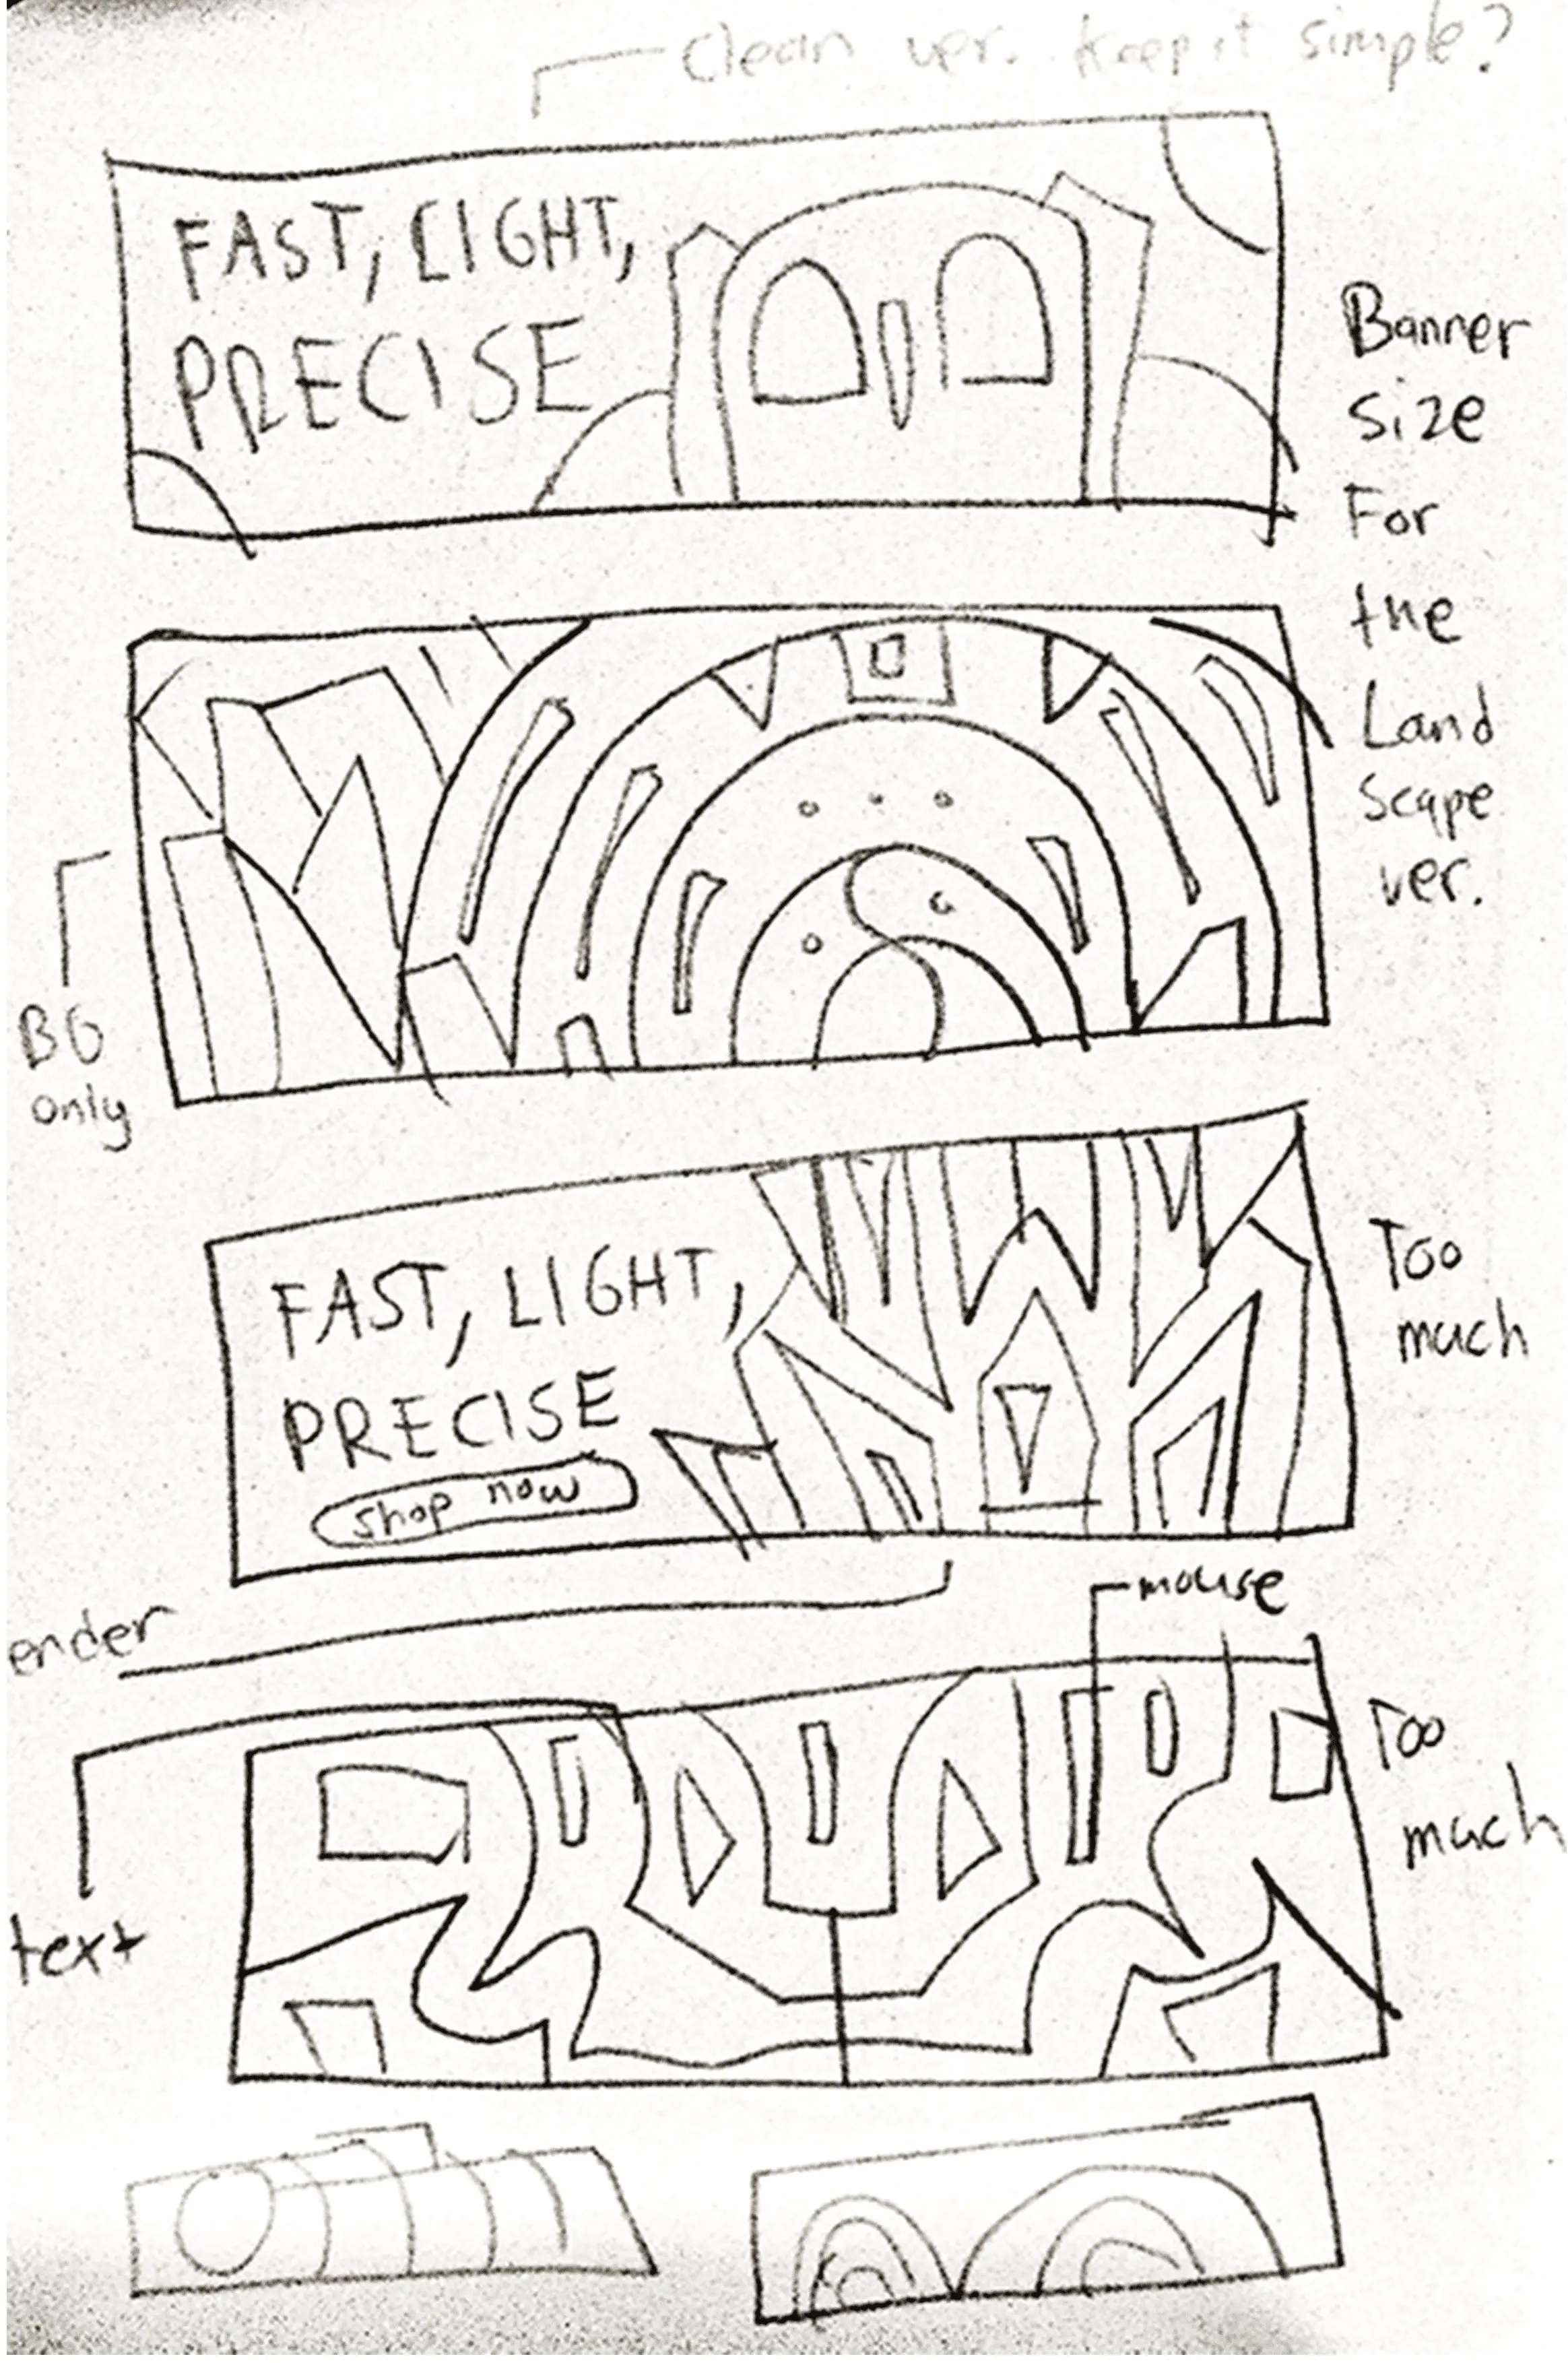 Clean ver. keep it simple?
FAST, LIGHT,
PRECISE
Banner
size
For
the
Land
scape
ver.
BG
only
FAST, LIGHT,
PRECISE
shop now
Too
much
ender
mouse
Too
much
text